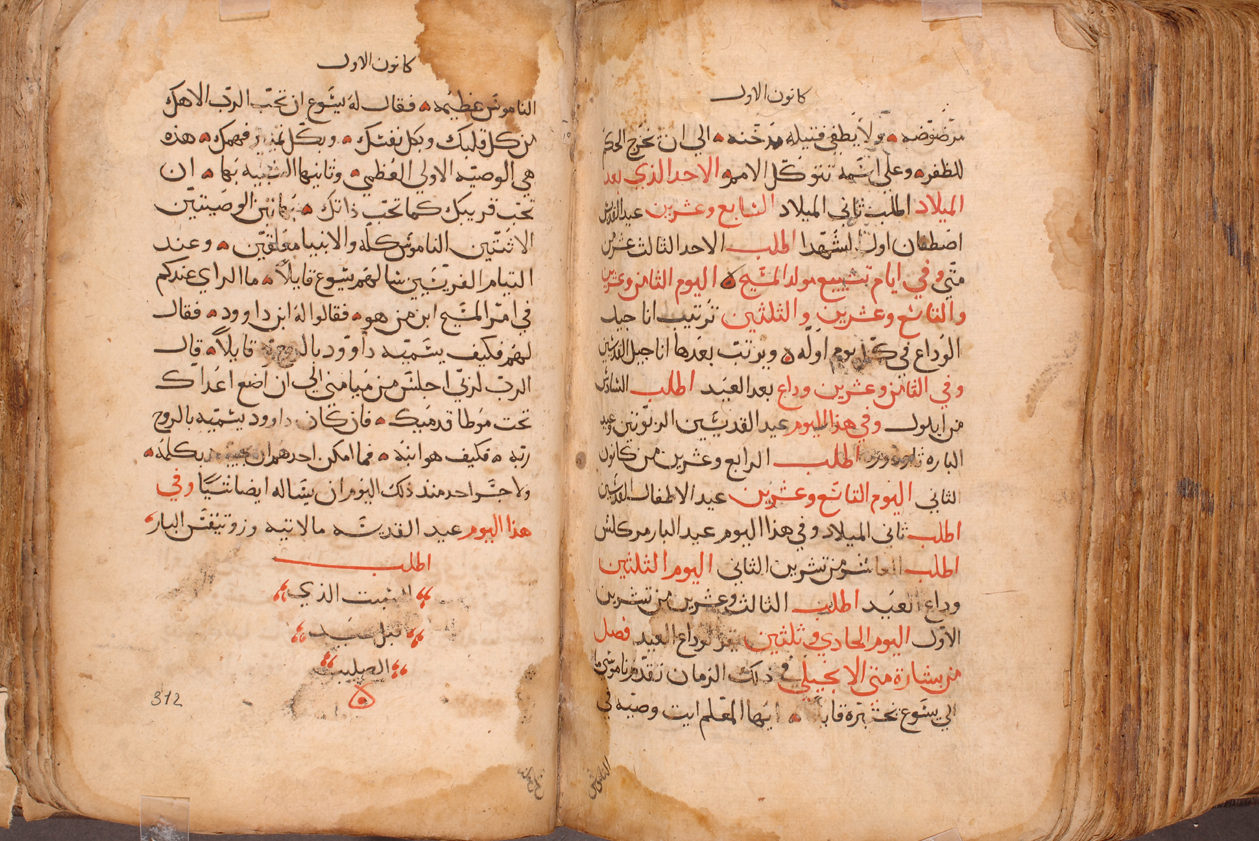 كانون الاول
مرضوضه ولا يطفي فتيله مدخنه الي ان يخرج الحكم
للظفر وعلى اسمه تتوكل الامم الاحد الذي بعد
الميلاد اطلب ثاني الميلاد السابع وعشرين عيد القديس
اصطفان اول الشهدا اطلب الاحد الثالث عشر من
متي وفي ايام تشييع مولد المسيح اليوم الثامن وعشرين
والتاسع وعشرين والثلثين ترتيب اناجيل
الوداع في كل يوم اوله ويرتب بعدها اناجيل القديسين
وفي الثامن وعشرين وداع بعد العيد اطلب السادس
من ايلول وفي هذا اليوم عيد القديسين الربوتين وعيد
الباره اطلب الرابع وعشرين من كانون
الثاني اليوم التاسع وعشرين عيد الاطفال القديسين
اطلب ثاني الميلاد وفي هذا اليوم عيد البار مركلس
اطلب العاشر من تشرين الثاني اليوم الثلثين
وداع العيد اطلب الثالث وعشرين من تشرين
الاول اليوم الحادي وثلثين لوداع العيد فصل
من بشارة متي الانجيلي في ذلك الزمان تقدم ناموسي ما
الي يسوع تجربة قايلا ايها المعلم ايت وصيه في
الناموس
كانون الاول
الناموس عظيمه فقال له يسوع ان تحب الرب الاهك
من كل قلبك وبكل نفسك وبكل فهمك هذه
هي الوصيه الاولى العظمي وثانيها الشبيه بها ان
تحب قريبك كما تحب ذاتك بهاتين الوصيتين
الاثنتين الناموس كله والانبيا معلقين وعند
التيام الفريسيين سالهم يسوع قايلا ما الراي عندكم
في امر المسيح ابن من هو فقالوا له ابن داوود فقال
لهم فكيف يسميه داوود بالروح قايلا قال
الرب لربي اجلس من ميامني الي ان اضع اعداك
تحت موطا قدميك فان كان داوود يسميه بالروح
ربه فكيف هو ابنه فما امكن احدهم ان يجيبه بكلمه
ولا جسر احد منذ ذلك اليوم ان يساله ايضا شيا وفي
هذا اليوم عيد القديسه مالانيه وزوتيقس البار
اطلب
السبت الذي
قبل عيد
الصليب
312